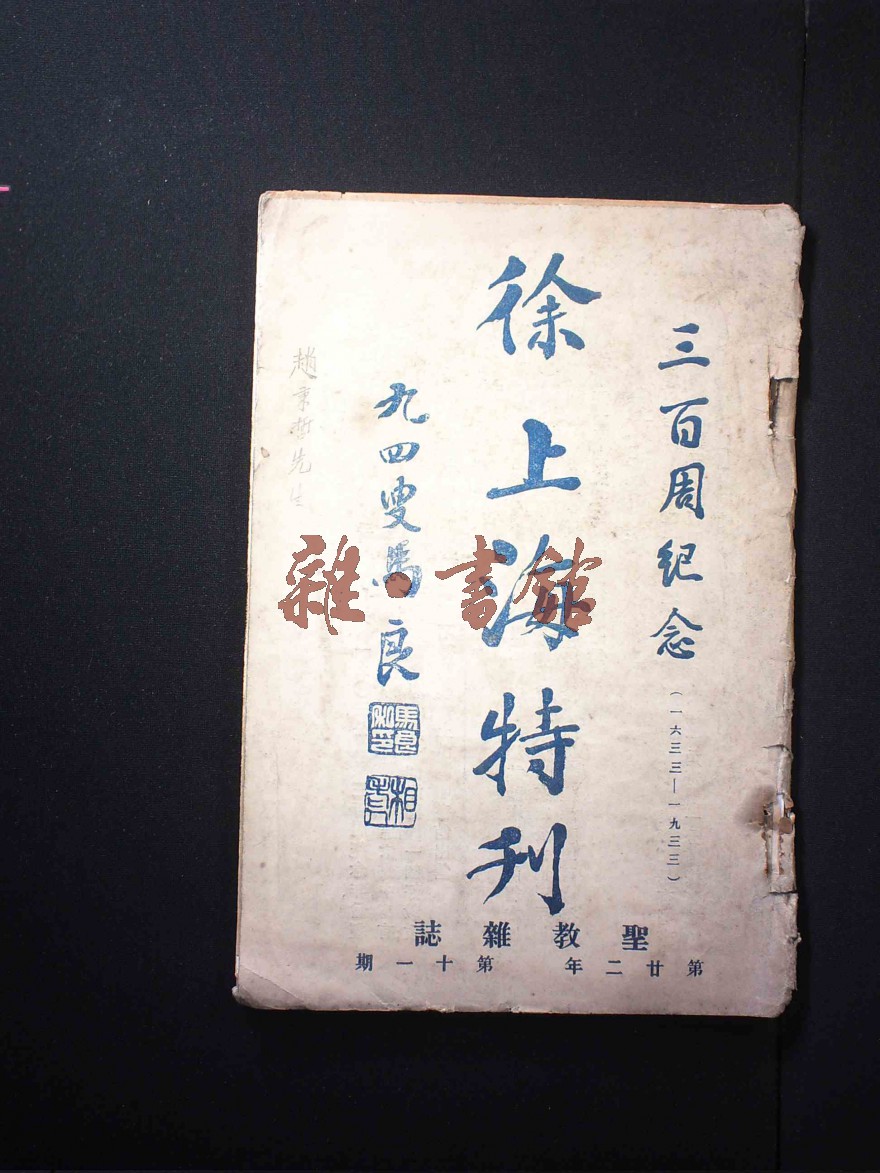 三百周紀念
(一六三三—一九三三)
徐上海特刊
九四叟馬良
馬良私印
相
趙秉哲先生
聖教雜誌
第廿二年 第十一期
雜·書館